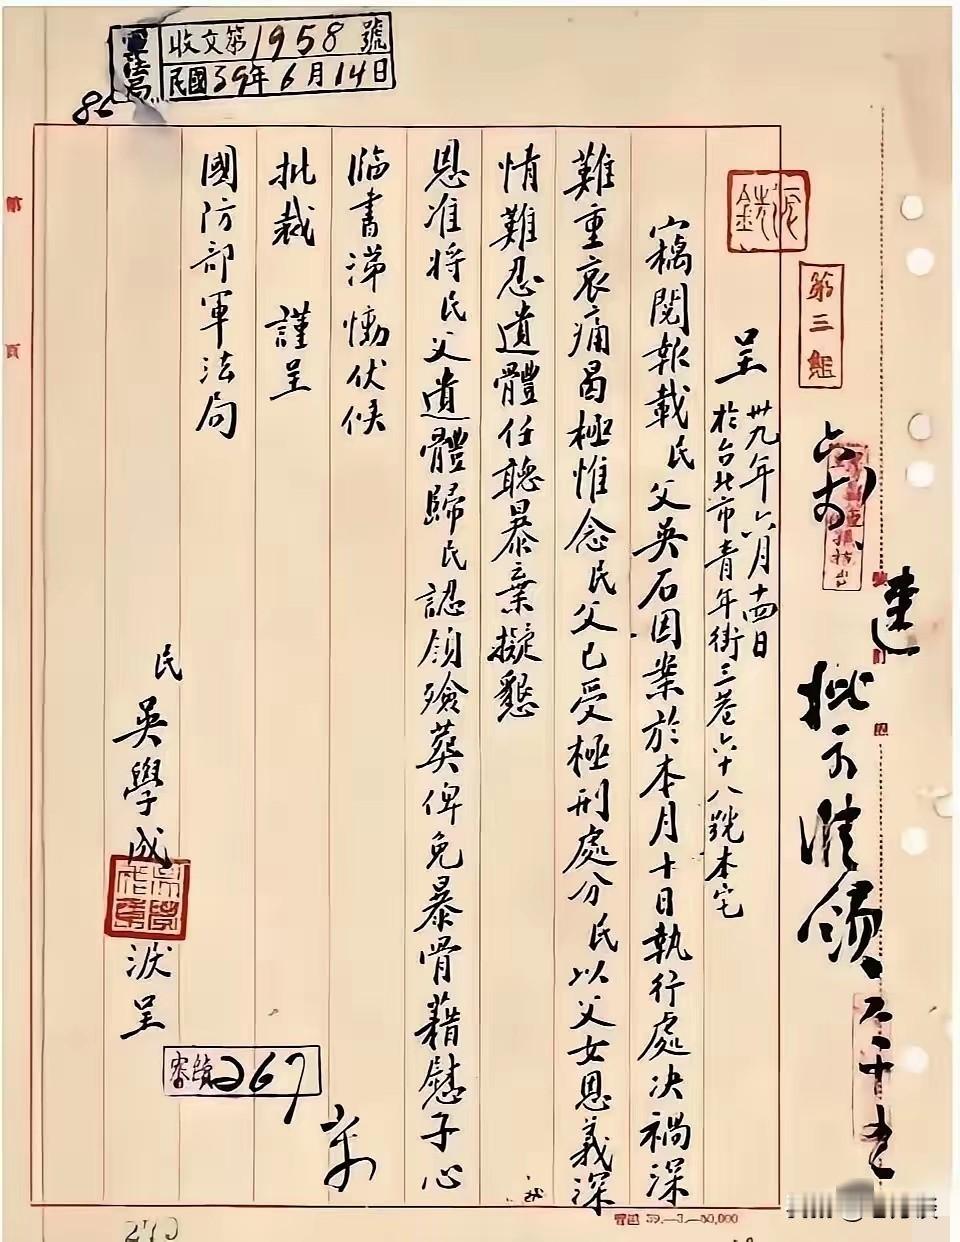 軍法局
收文第1958號
民國39年6月14日
第三組
速
批示准領
六、十五
呈
卅九年六月十四日
於台北市青年街三巷六十八號本宅
竊閱報載民父吳石因案於本月十日執行處決禍深
難重哀痛曷極惟念民父已受極刑處分民以父女恩義深
情難忍遺體任聽暴棄擬懇
恩准將民父遺體歸民認領殮葬俾免暴骨藉慰子心
臨書涕慟伏候
批裁 謹呈
國防部軍法局
民 吳學成 淚呈
267
第 頁
39.—3.—50,000
270